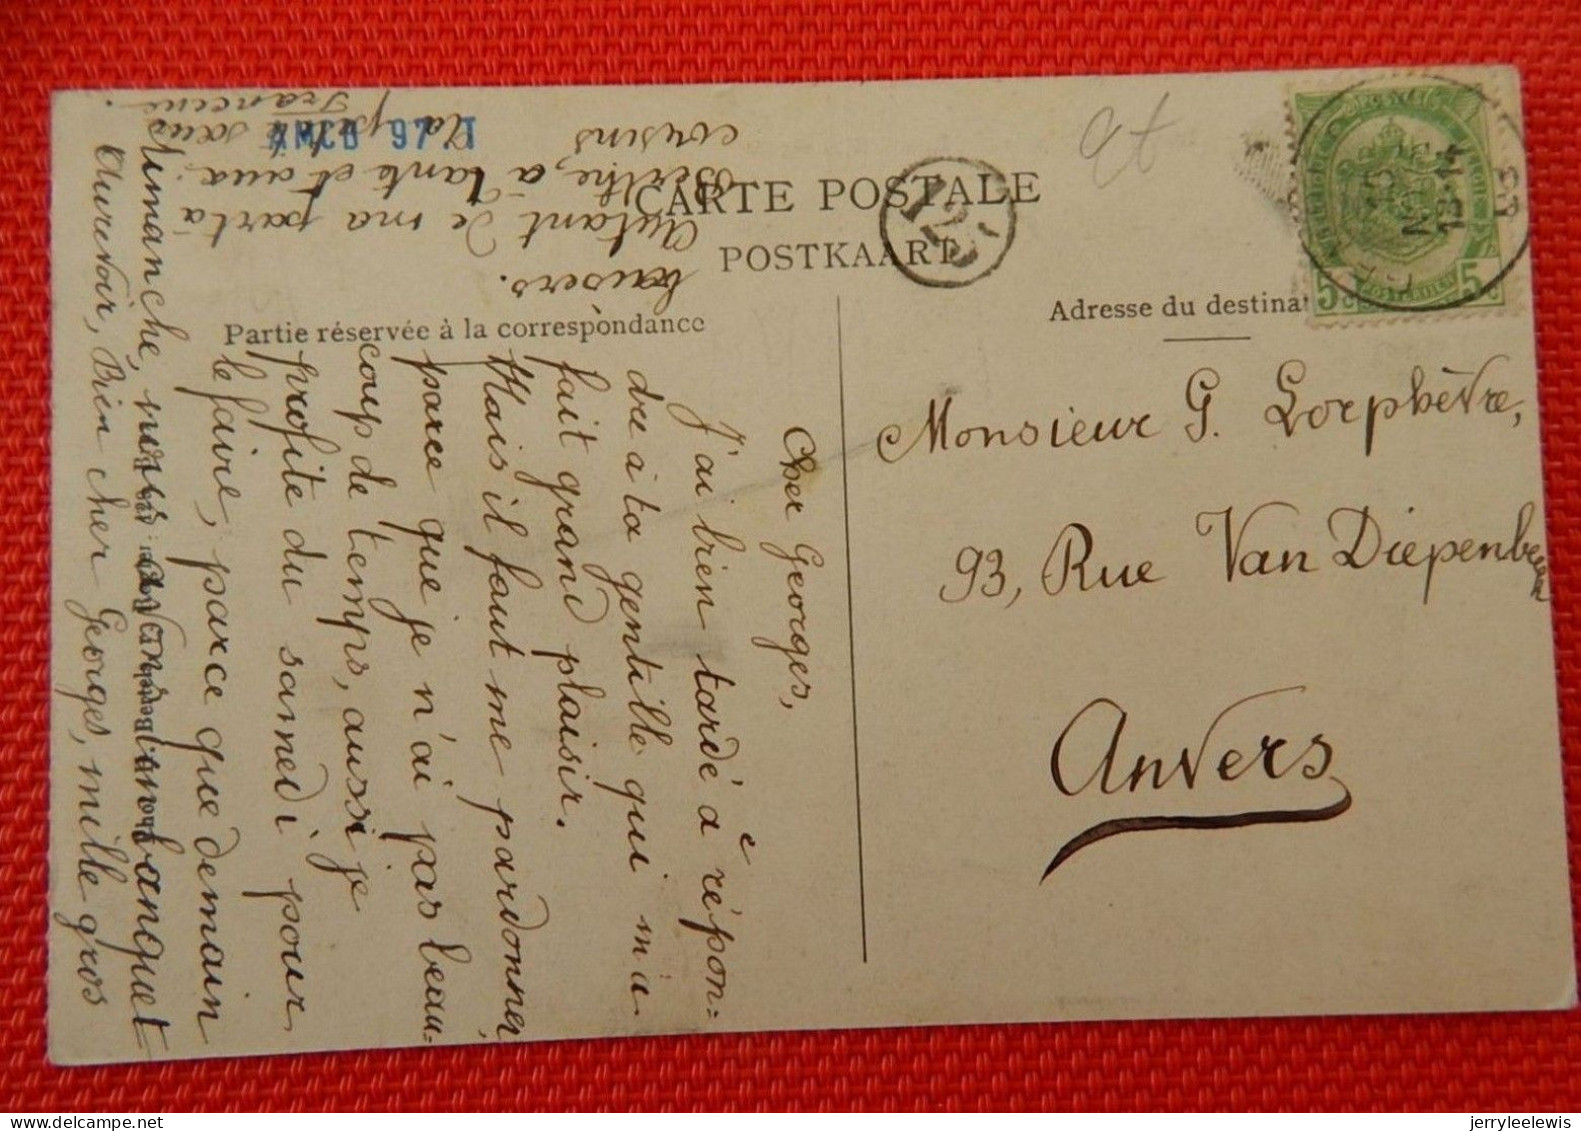 CARTE POSTALE
POSTKAART
Partie réservée à la correspondance
Adresse du destinat
AMCB 97 T
5c 5c
Monsieur G. Lorphèvre,
93, Rue Van Diepenbeeck
Anvers
Cher Georges,
J'ai bien tardé à répon=
dre à ta gentille qui m'a
fait grand plaisir.
Mais il faut me pardonner,
parce que je n'ai pas beau=
coup de temps, aussi je
profite du samedi pour
le faire, parce que demain
dimanche, nous avons banquet
Aurevoir, Bien cher Georges, mille gros
baisers.
Autant de ma part à
Berthe, à tante et aux
cousins
Ta petite sœur
Francine.
jerryleelewis